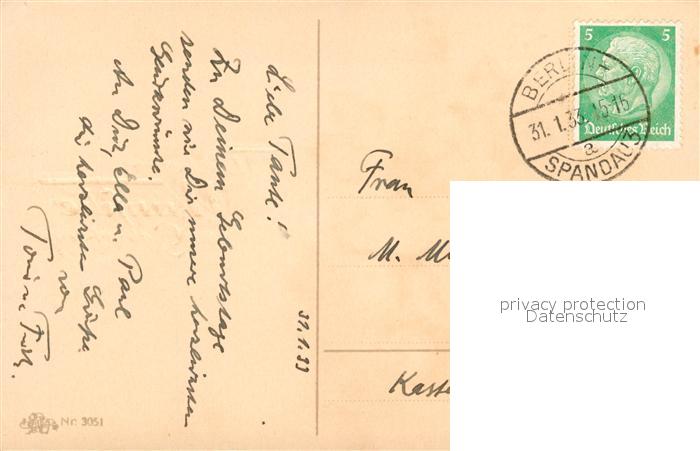 Liebe Tante!
Zu Deinem Geburtstage
senden wir Dir unsere herzlichsten
An Dich, Ella u. Paul
die herzlichsten Grüße
von
31.1.33
Nr. 3051
5 5
Deutsches Reich
BERLIN-
31.1.33. 15-16
a
SPANDAU 3
Frau
M. M
Kasse
privacy protection
Datenschutz